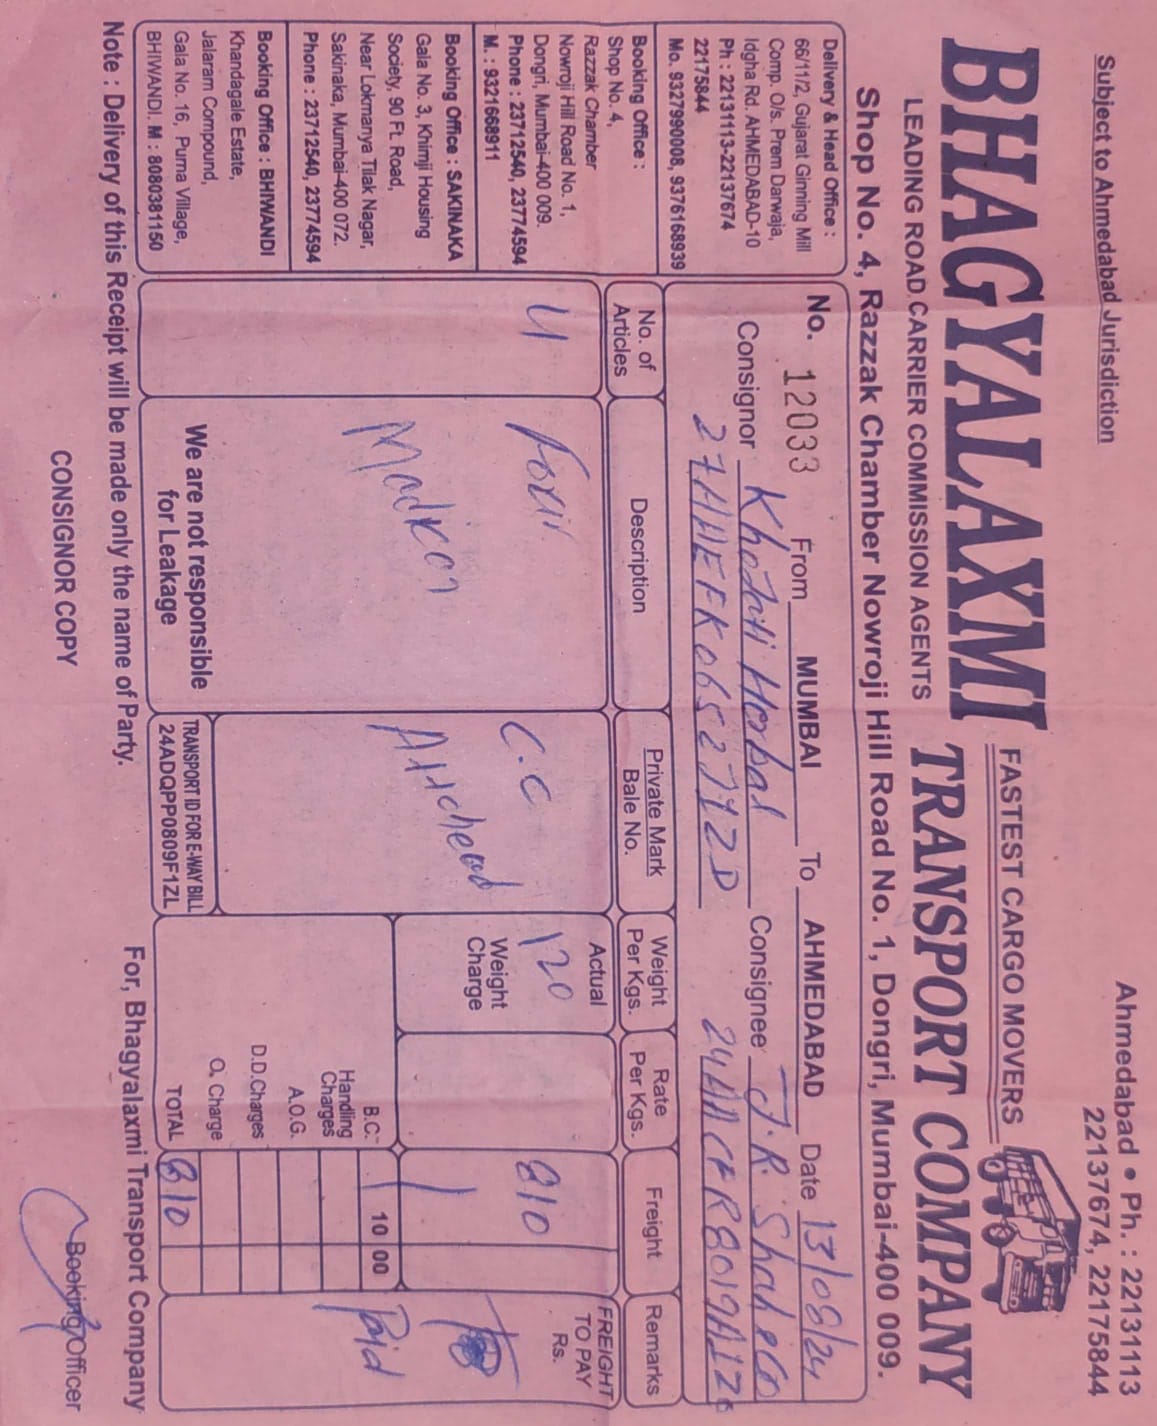 Subject to Ahmedabad Jurisdiction
Ahmedabad • Ph. : 22131113
22137674, 22175844
BHAGYALAXMI TRANSPORT COMPANY
FASTEST CARGO MOVERS
LEADING ROAD CARRIER COMMISSION AGENTS
Shop No. 4, Razzak Chamber Nowroji Hill Road No. 1, Dongri, Mumbai-400 009.
Delivery & Head Office :
66/11/2, Gujarat Ginning Mill
Comp. O/s. Prem Darwaja,
Idgha Rd. AHMEDABAD-10
Ph : 22131113-22137674
22175844
Mo. 9327990008, 9376168939
Booking Office :
Shop No. 4,
Razzak Chamber
Nowroji Hill Road No. 1,
Dongri, Mumbai-400 009.
Phone : 23712540, 23774594
M. : 9321668911
Booking Office : SAKINAKA
Gala No. 3, Khimji Housing
Society, 90 Ft. Road,
Near Lokmanya Tilak Nagar,
Sakinaka, Mumbai-400 072.
Phone : 23712540, 23774594
Booking Office : BHIWANDI
Khandagale Estate,
Jalaram Compound,
Gala No. 16, Purna Village,
BHIWANDI. M : 8080381150
No. 12033 From MUMBAI To AHMEDABAD Date 13/06/24
Consignor Herbal Consignee J.R. Shah & Co
No. of Articles
Description
Private Mark
Bale No.
Weight Per Kgs.
Rate Per Kgs.
Freight
Remarks
C.C
Actual
120
810
FREIGHT TO PAY Rs.
Attched
Weight Charge
Paid
B.C. 10 00
Handling Charges
A.O.G.
D.D.Charges
O. Charge
TOTAL 810
We are not responsible
for Leakage
TRANSPORT ID FOR E-WAY BILL
24ADQPP0809F1ZL
Note : Delivery of this Receipt will be made only the name of Party.
For, Bhagyalaxmi Transport Company
CONSIGNOR COPY
Booking Officer